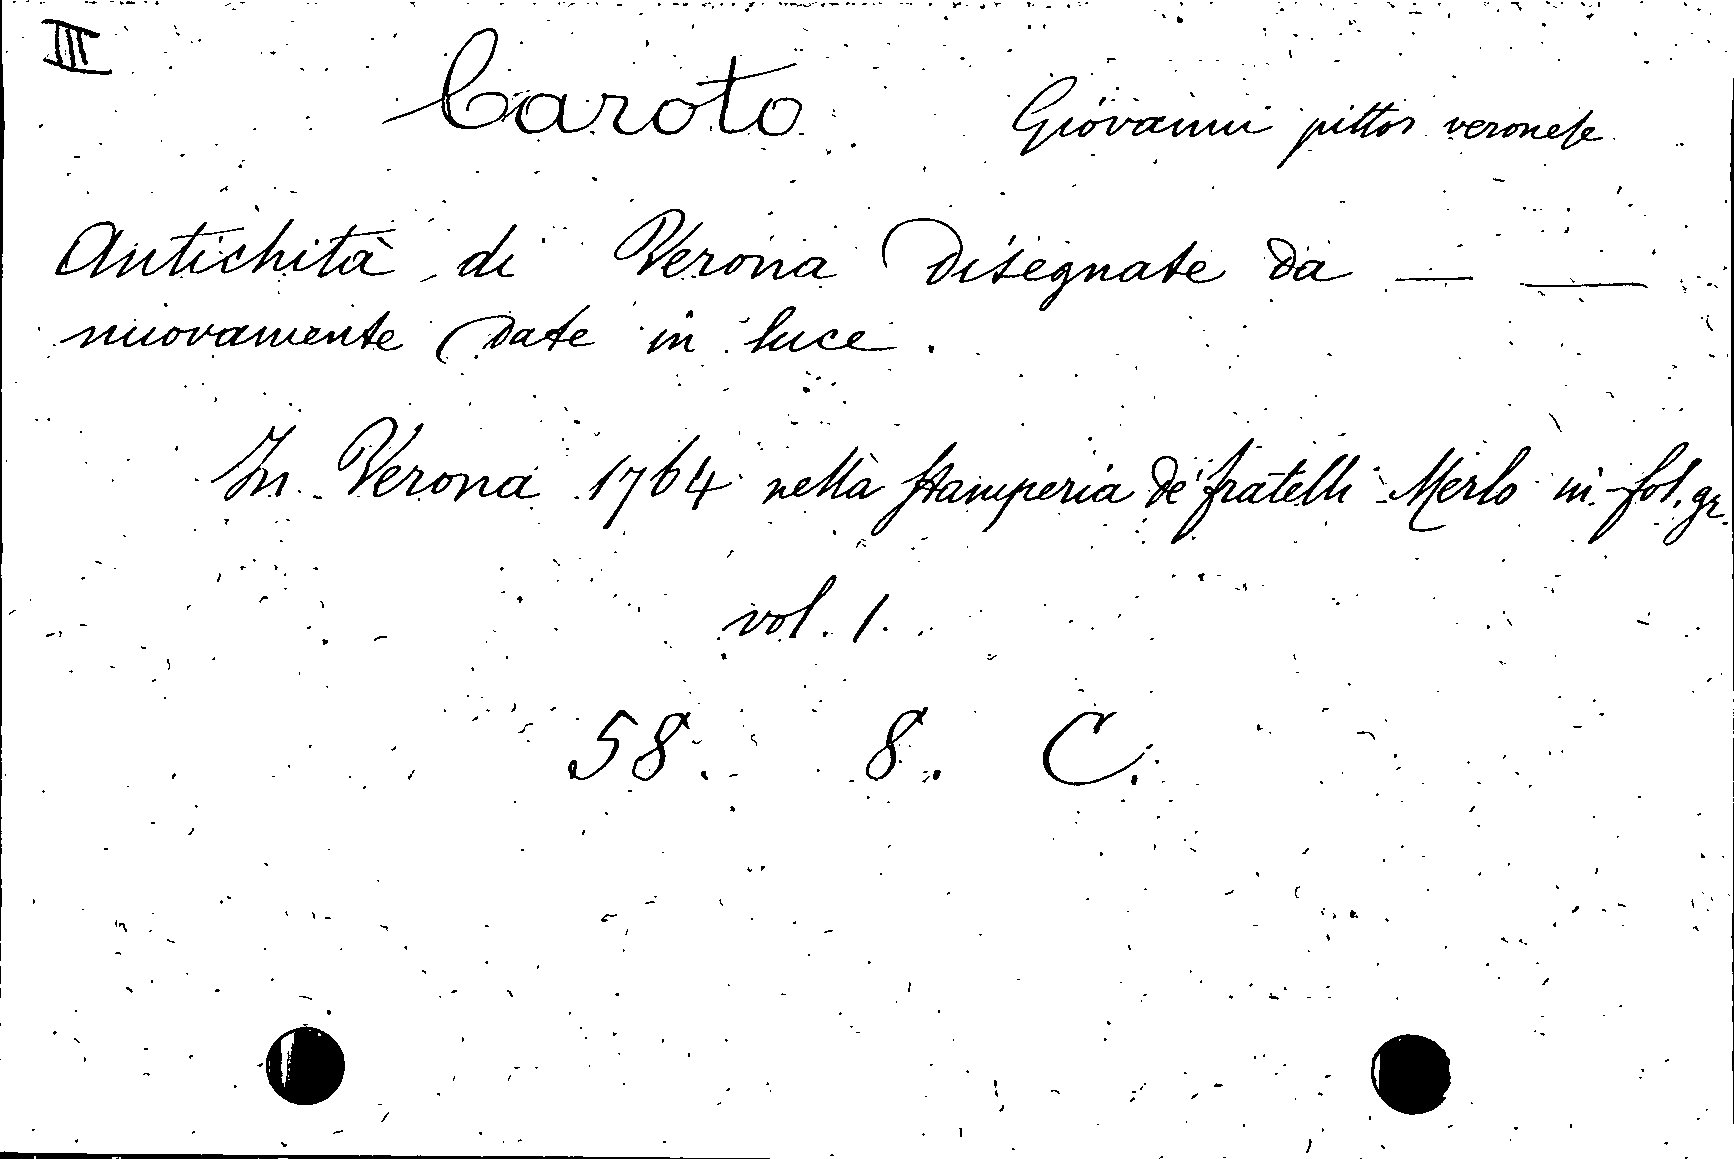 III
Caroto Giovanni pittor veronese
Antichità di Verona disegnate da — —
nuovamente date in luce.
In Verona 1764 nella stamperia de' fratelli Merlo in fol. gr.
vol. 1.
58. 8. C.